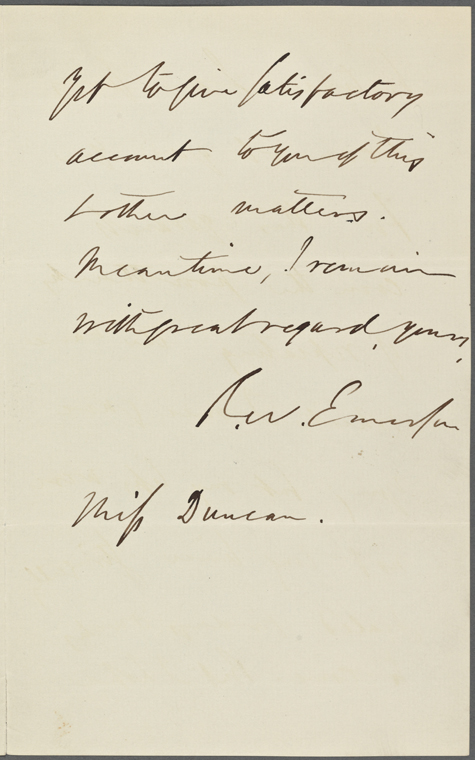 yet to give satisfactory
account to you of this
& other matters.
Meantime, I remain
with great regard, yours,
R. W. Emerson
Miss Duncan.